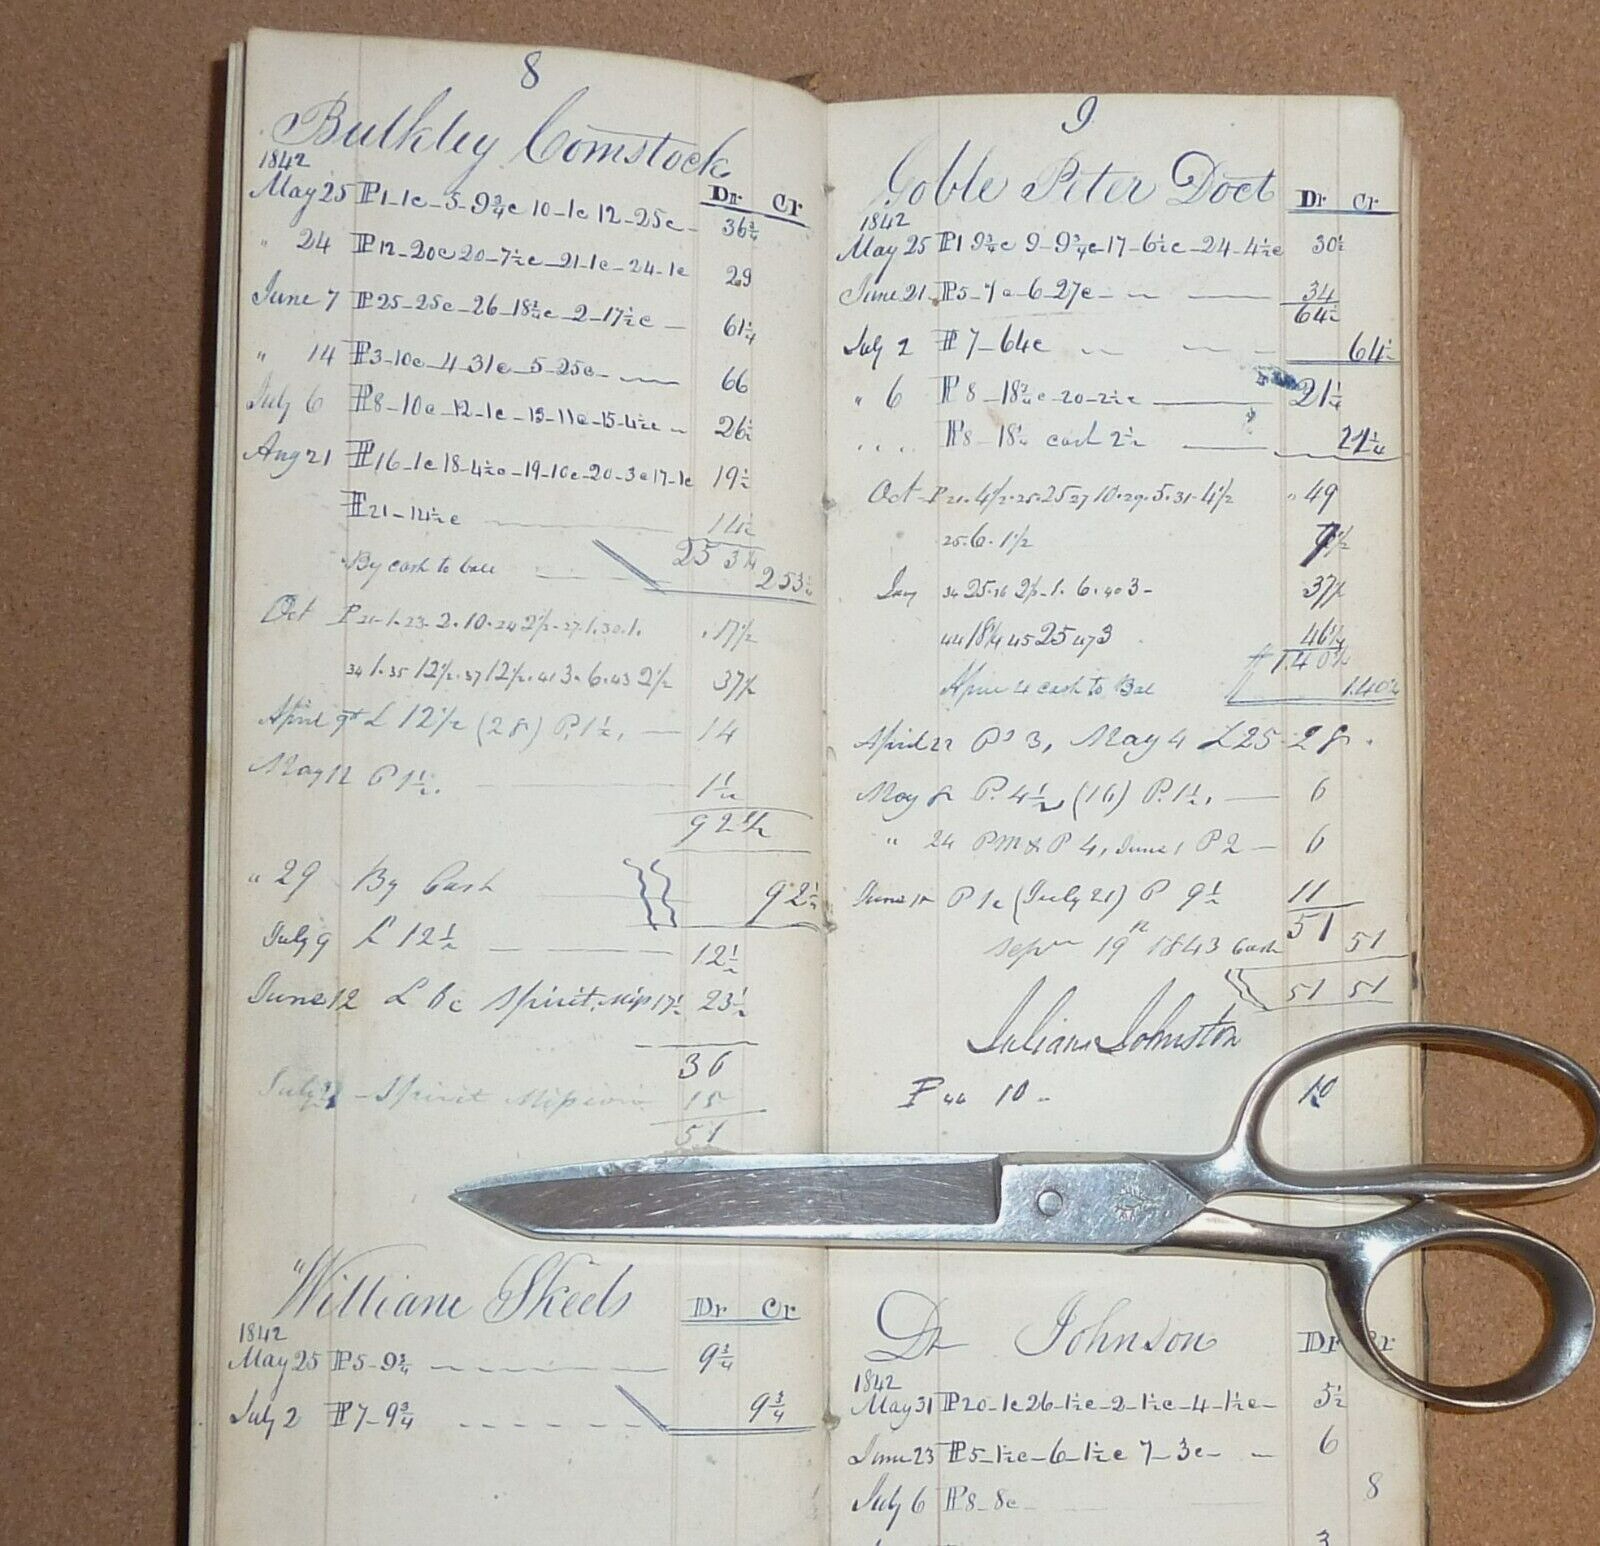 8
Bulkley Comstock
1842 Dr Cr
May 25 P1-1c-5-9¾c 10-1c 12-25c- 36¾
" 24 P12-20c 20-7½c-21-1c-24-1c 29
June 7 P25-25c-26-18¾c-2-17½c- 61¼
" 14 P3-10c-4-31c-5-25c- 66
July 6 P8-10c-12-1c-13-11c-15-4½c- 26½
Aug 21 P16-1c 18-4½c-19-10c-20-3c 17-1c 19½
P21-14½c 14½
253¼
By cash to ball 253½
Oct P21-1.23.2.10.24 2½.27.1.30.1. 17½
34 1.35 12½.37 12½.41 3.6.43 2½ 37½
April 9th L 12½ (28) P.1½, 14
May 12 P 1½. 1½
92½
" 29 By Cash 92½
July 9 L 12½ 12½
June 12 L 6c Spirit, Mis 17½ 23½
36
July - Spirit 15
51
William Skeels Dr Cr
1842
May 25 P5-9¾ 9¾
July 2 P7-9¾ 9¾
9
Goble Peter Doct Dr Cr
1842
May 25 P1 9¾c 9-9¾c-17-6½c-24-4½c 30½
June 21 P5-7c-6-27c- 34
64½
July 2 P7-64c 64½
" 6 P8-18¾c-20-2½c 21¼
P8-18¾ cash 2½ 21¼
Oct P21.4½.25.25 27 10.29.5.31.4½ 49
25.6.1½ 7½
Jan 34 25.36 2½-1.6.40 3- 37½
44 18¼ 45 25 47 3 46¼
1.40¼
April 4 cash to Bal 1.40¼
April 22 Ps 3, May 4 L25 28
May 8 P. 4½ (16) P. 1½, 6
" 24 PM & P 4, June 1 P 2 6
June 10 P 1c (July 21) P 9½ 11
51
Sepr 19th 1843 Cash 51
51 51
Juliana Johnston
P 44 10 10
Dr Johnson Dr Cr
1842
May 31 P20-1c 26-1½c-2-1½c-4-1½c- 5½
June 23 P5-1½c-6-1½c 7-3c- 6
July 6 P8-8c- 8
3